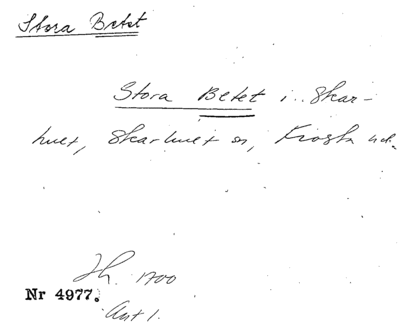 Stora Betet
Stora Betet i Skar-
hult, Skarhult sn, Frosta hd.
Lh. 1700
Nr 4977.
Akt 1.